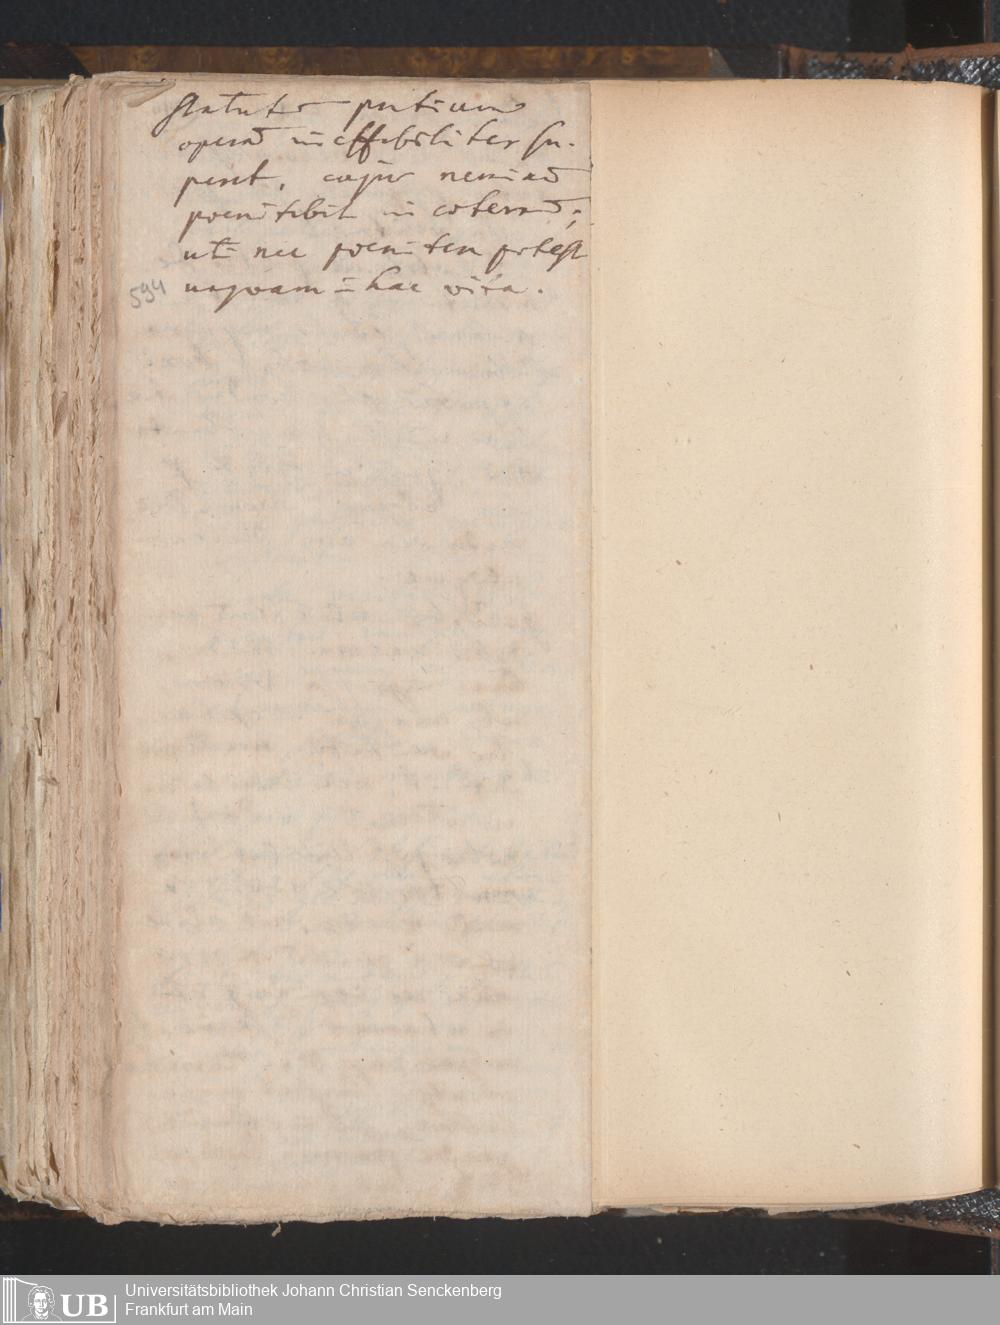 statuto
operā ineffabiliter su-
peret, cujus neminē
poenitebit in ceterū;
uti nec poenitere potest
unqvam in hac vita.
594
UB
Universitätsbibliothek Johann Christian Senckenberg
Frankfurt am Main